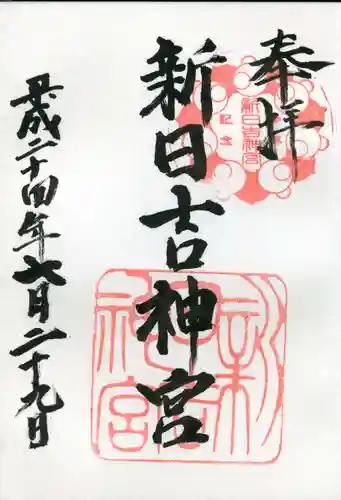 奉拝
新日吉神宮
平成二十四年七月二十九日
新日吉神宮
記念
新日吉神宮